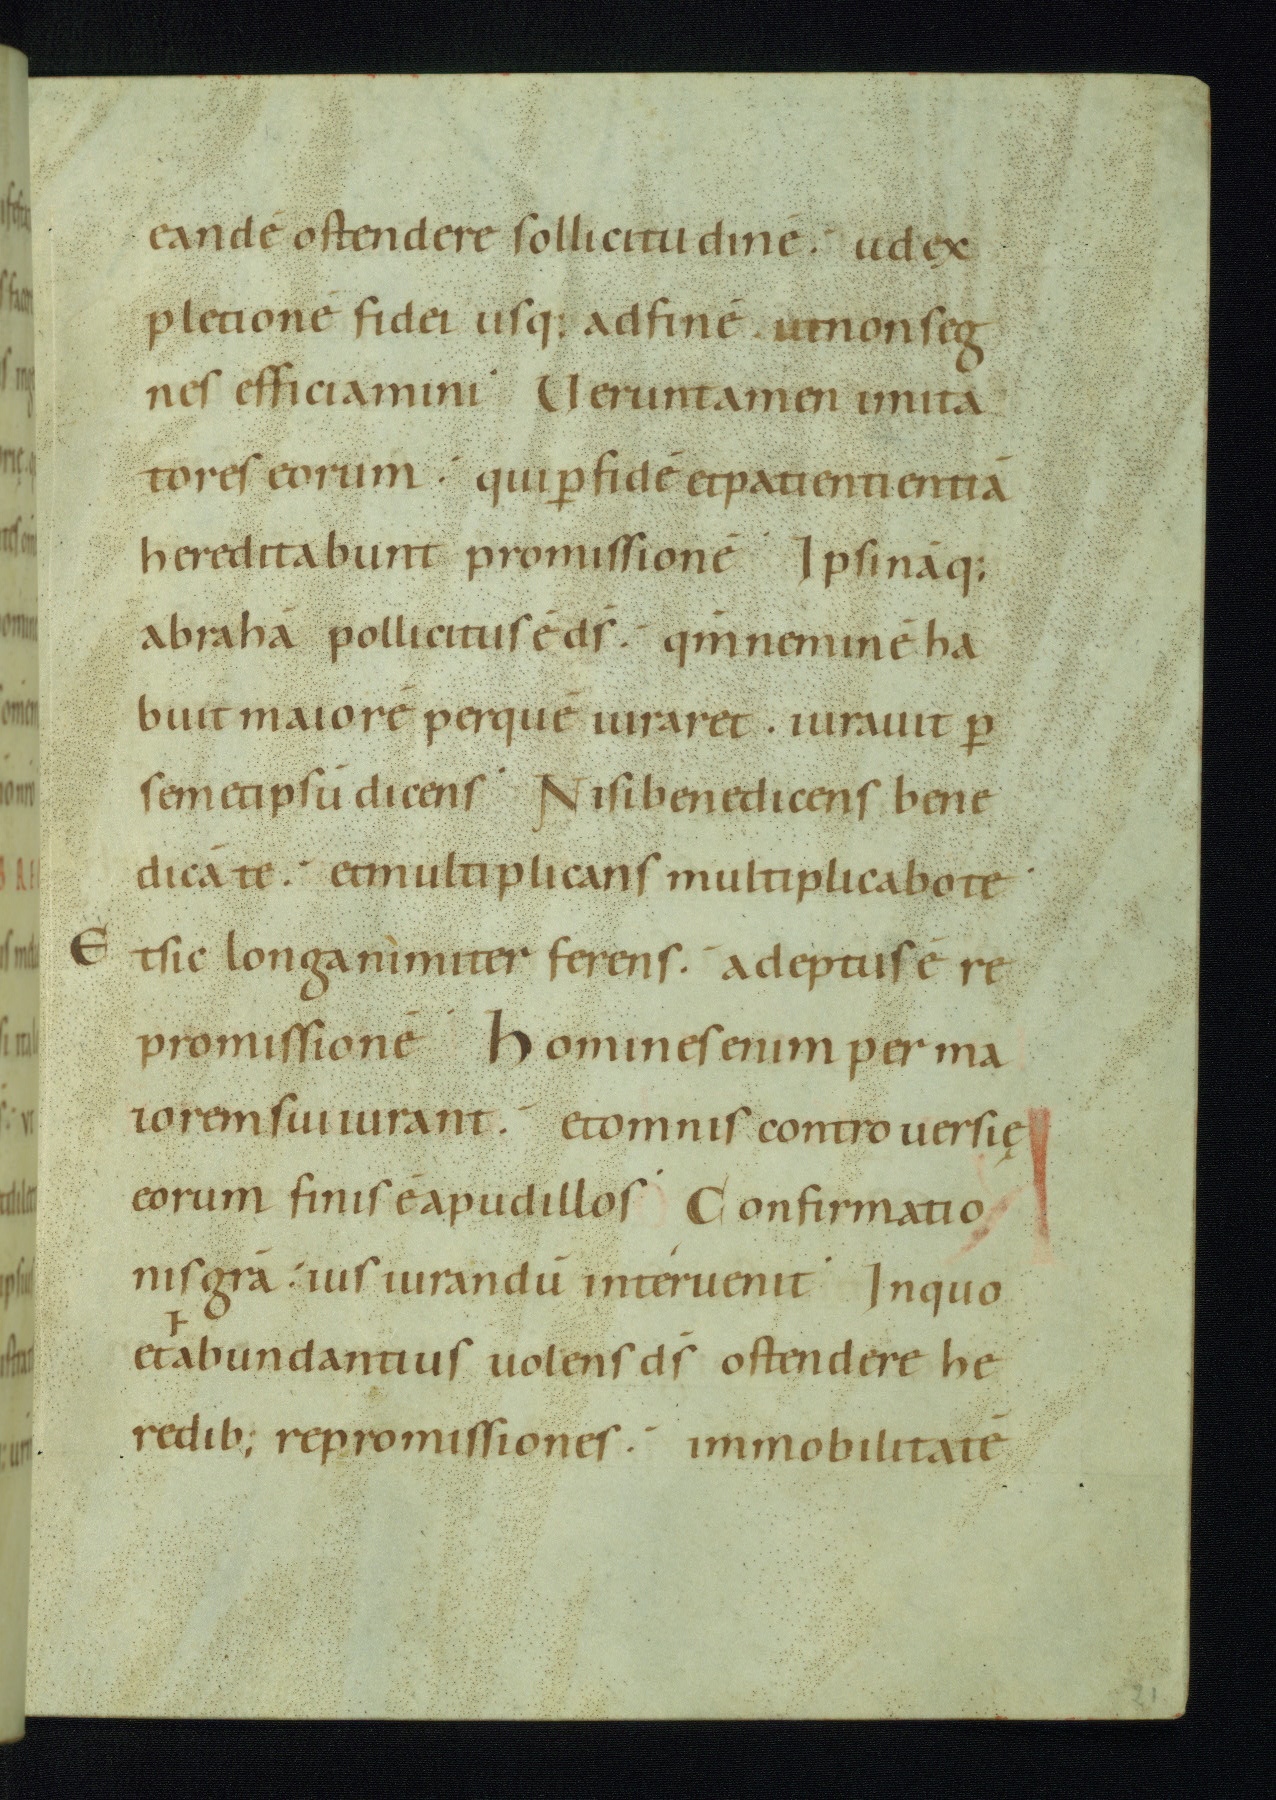 eandē ostendere sollicitudinē. udex
pletionē fidei usq; adfinē. utnonseg
nes efficiamini. Ueruntamen imita
tores eorum. qui ꝑ fidē etpatientientiā
hereditabunt promissionē. Ipsināq;
abrahā pollicitus ē ds̄. qm̄ neminē ha
buit maiorē perquē iuraret. iurauit ꝑ
semetipsū dicens. Nisi benedicens bene
dicā te. etmultiplicans multiplicabo te.
Etsic longanimiter ferens. adeptus ē re
promissionē. Homines enim per ma
iorem sui iurant. etomnis controuersię
eorum finis ē apudillos. Confirmatio
nis grā. ius iurandū interuenit. Inquo
etabundantius uolens ds̄ ostendere he
redib; repromissiones. immobilitatē
21